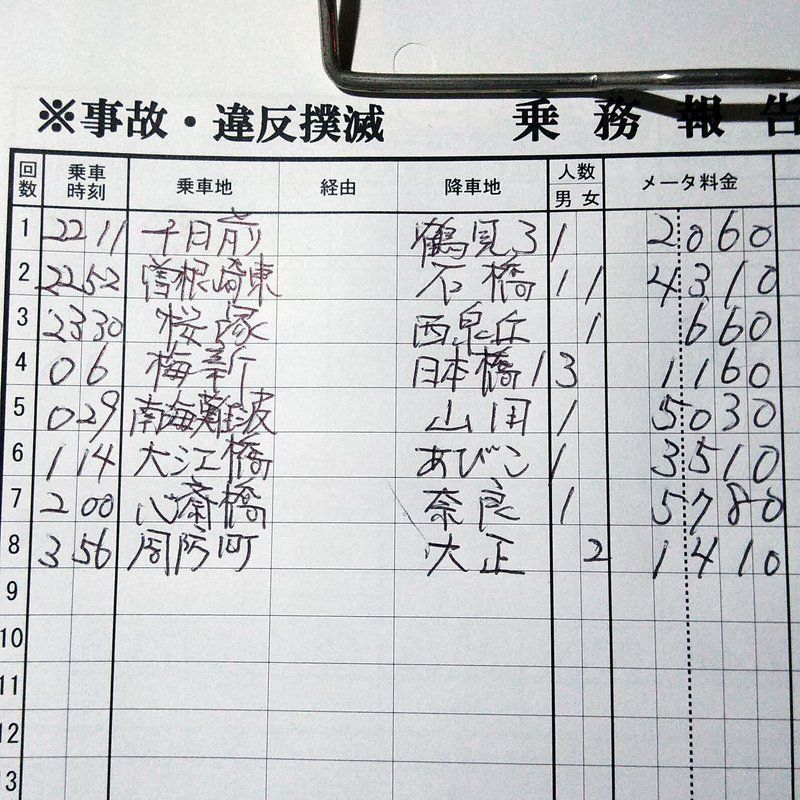 ※事故・違反撲滅 乗務報告
回数 乗車時刻 乗車地 経由 降車地 人数 男 女 メータ料金
1 22 11 千日前 鶴見3 1 2060
2 22 52 曽根崎東 石橋 1 1 4310
3 23 30 桜塚 西泉丘 1 660
4 0 6 梅新 日本橋1 3 1160
5 0 29 南海難波 山田 1 5030
6 1 14 大江橋 あびこ 1 3510
7 2 00 心斎橋 奈良 1 5780
8 3 56 周防町 大正 2 1410
9
10
11
12
13